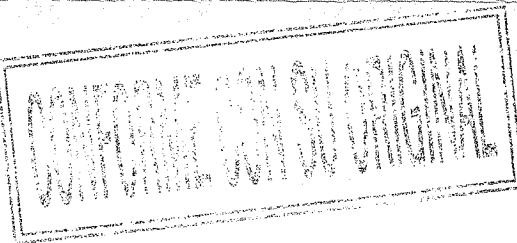 CONFORME CON SU ORIGINAL